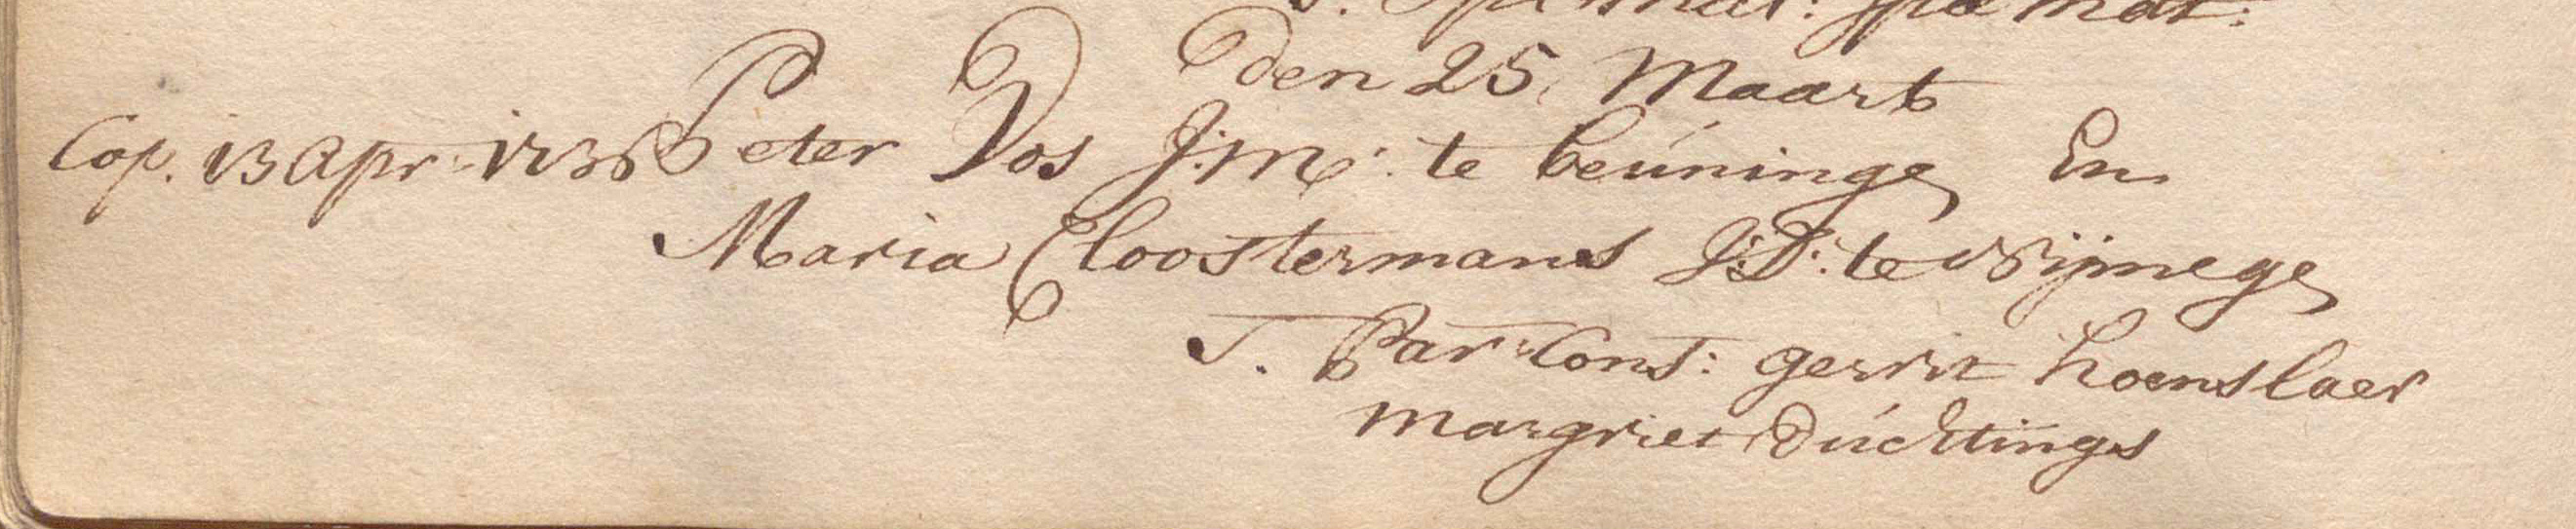 mat:
den 25, Maart
Cop. 13 Apr. 1736 Peter Vos J:M: te beúninge En
Maria Cloostermans J:D: te Nijmege
T. Par: Cons: gerrit hoenslaer
margriet Dúchtings